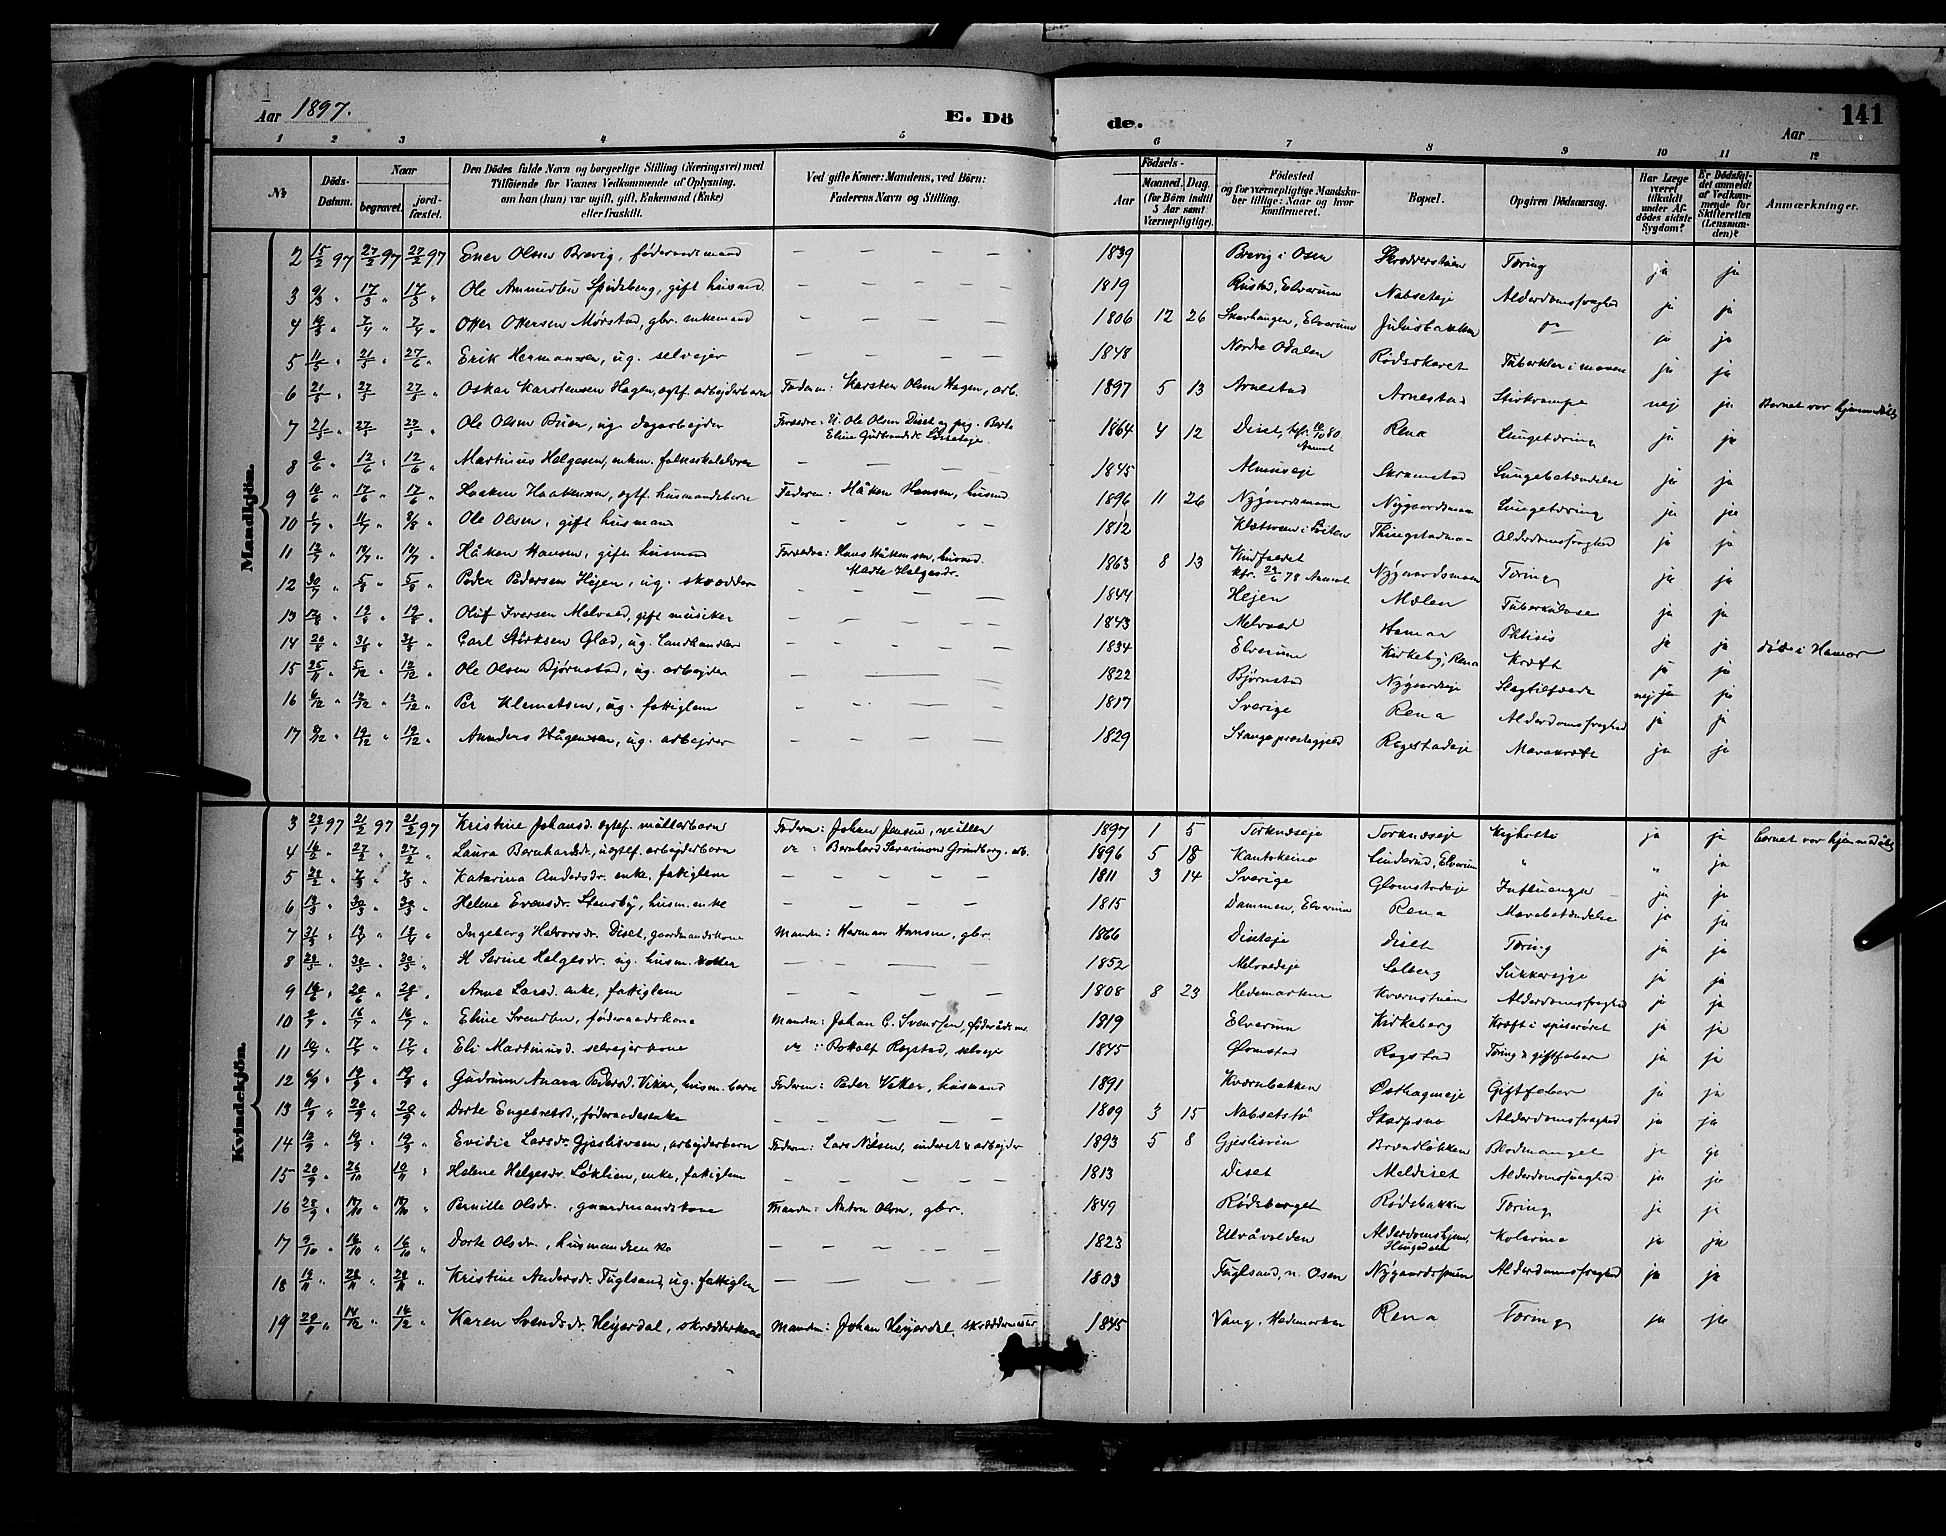 Aar 1897. E. Dö de. Aar 141
1 2 3 4 5 6 7 8 9 10 11 12
№ Döds-Datum. Naar begravet. jordfæstet. Den Dödes fulde Navn og borgerlige Stilling (Næringsvei) med Tilföiende for Voxnes Vedkommende af Oplysning, om han (hun) var ugift, gift, Enkemand (Enke) eller fraskilt. Ved gifte Koner: Mandens, ved Börn: Faderens Navn og Stilling. Födsels- Aar Maaned. Dag. (for Börn indtil 5 Aar samt Værnepligtige). Födested og for værnepligtige Mandskaber tillige: Naar og hvor konfirmeret. Bopæl. Opgiven Dödsaarsag. Har Læge været tilkaldt under Afdödes sidste Sygdom? Er Dödsfaldet anmeldt af Vedkommende for Skifteretten (Lensmanden)? Anmærkninger.
Mandkjön.
2 15/2 97 27/2 97 27/2 97 Ener Olsen Brævig, føderaadsmand — — — — 1839 Brævig i Osen Skredderstuen Tæring ja ja
3 9/3 " 17/3 " 17/3 " Ole Ammundsen Spidsberg, gift husmand. — — — — 1819 Rustad, Elverum Nabseteje Alderdomssvaghed ja ja
4 7/4 " 7/4 " Otter Ottersen Mørstad, gbr. enkemand — — — — 1806 12 26 Skarhaugen, Elverum Julusbakken ja ja
5 11/5 " 21/5 " 27/6 " Erik Hermansen, ug. selvejer — — — — 1848 Nordre Odalen Rødsskaret Tuberkler i maven ja ja
6 21/5 " 27/5 " 27/5 " Oskar Karstensen Hagen, ægtf. arbejderbarn Faderen: Karsten Olsen Hagen, arb. 1897 5 13 Arnestad Arnestad Stivkrampe nej ja Barnet var hjemmedøbt
7 21/5 " 27/5 " 27/5 " Ole Olsen Buen, ug. dagarbejder Forældre: U. Ole Olsen Diset og pig. Berte
Eline Gudbrandsdr. Diseteje. 1864 4 12 Diset, kfr. 10/10 80 Aamot Rena Lungetæring ja ja
8 9/6 " 12/6 " 12/6 " Martinus Helgesen, enkm. folkeskolelærer — — — — 1845 Almuseje Skramstad Lungebetændelse ja ja
9 10/6 " 17/6 " 17/6 " Haaken Haakensen, ægtf. husmandsbarn Faderen: Håken Hansen, husmd. 1896 11 26 Nygaardsmoen Nygaardsmoen Lungetæring ja ja
10 11/7 " 8/8 " Ole Olsen, gift husmand — — — — 1812 Thingstadmo Alderdomssvaghed ja ja
11 Håken Hansen, gift husmand Forældre: Hans Håkensen, husmd.
Marte Helgesdr. 1863 8 13 kfr. 29/6 78 Aamot Nygaardsmoen Tæring ja ja
12 30/7 " 5/8 " 5/8 " Peder Pedersen Hejen, ug. skrædder — — — — 1844 Hejen Mælen Tuberkulose ja ja
13 Oluf Iversen Melvold, gift musiker — — — — 1843 Melvold Hamar Phtisis ja ja døde i Hamar
14 Carl Størksen Glad, ug. Landhandler — — — — 1834 Elverum Kirkeby, Rena Kræft ja ja
15 25/11 " 5/12 " 12/12 " Ole Olsen Bjørnstad, ug. arbejder — — — 1822 Bjørnstad Nygaardseje Slagtilfælde nej ja ja
16 6/12 " 12/12 " 12/12 " Per Klemetsen, ug. fattiglem — — — — 1817 Sverige Rena Alderdomssvaghed ja ja
17 9/12 " 19/12 " 19/12 " Anders Hågensen, ug. arbejder — — — — 1829 Stange præstegjeld Rogstadeje Mavekræft ja ja
Kvindekjön.
3 23/1 97 21/2 97 21/2 97 Kristine Johansd. ægtef. møllerbarn Faderen: Johan Jensen, møller 1897 1 5 Torknæseje Torknæseje Kighoste ja ja barnet var hjemmedøbt
4 16/2 " 27/2 " 27/2 " Laura Bernhardsdr., uægtef. arbejderbarn do : Bernhard Severinsen Grundberg, arb. 1896 5 18 Kautokeino Linderud, Elverum " " ja
5 28/2 " 7/3 " 7/3 " Katarina Andersdr. enke, fattiglem — — — — 1811 3 14 Sverige Glomstadeje Influenza ja ja
6 13/3 " 20/3 " 20/3 " Helene Evensdr. Stensby, husm. enke — — — — 1815 Dammen, Elverum Rena Mavebetændelse ja ja
7 31/3 " 13/4 " 13/4 " Ingeborg Halvorsdr. Diset, gaardmandskone Manden: Herman Hansen, gbr. 1866 Diseteje Diset Tæring ja ja
8 23/5 " 30/5 " 30/5 " H Serine Helgesdr. ug. husm. datter — — — 1852 Melvoldeje Solberg Sukkersyge ja ja
9 16/6 " 20/6 " 20/6 " Anne Larsd. enke, fattiglem — — — — 1808 8 23 Hedemarken Kværnstuen Alderdomssvaghed ja ja
10 9/7 " 16/7 " 16/7 " Eline Svendsen, føderaadskone Manden: Johan C. Svendsen, føderådsm. 1819 Elverum Kirkeberg Kræft i spiserøret ja ja
11 10/7 " 17/7 " 17/7 " Eli Martinusd. selvejerkone do : Botolf Rogstad, selveje 1845 Ølmstad Rogstad Tæring & giftfeber ja ja
12 6/9 " 19/9 " 19/9 " Gudrum Anara Pedersd. Veker, husm. barn Faderen: Peder Veker, husmand 1891 Kværnbakken Østhagmeje Giftfeber ja ja
13 11/9 " 20/9 " 20/9 " Dorte Engebretsd., føderaadsenke — — — — 1809 3 15 Nabsetstø Skarpsno Alderdomssvaghed ja ja
14 19/9 " 19/9 " Evidie Larsdr. Gjeslisveen, arbejderbarn Faderen: Lars Nilsen, inderst & arbejder 1893 5 8 Gjeslisvin Brændløkken Blodmangel ja ja
15 20/9 " 26/10 " 10/11 " Helene Helgesdr. Løklien, enke, fattiglem — — — — 1813 Diset Meldiset Alderdomssvaghed ja ja
16 28/9 " 17/10 " 17/10 " Pernille Olsdr., gaardmandskone Manden: Anton Olsen, gbr. 1849 Rødsberget Rødsbakken Tæring ja ja
17 9/10 " 16/10 " 16/10 " Dorte Olsdr., husmandsenke — — — — — 1823 Ulvåvolden Alderdomshjem, Haugedalen Kolerine ja ja
18 19/11 " 28/11 " 28/11 " Kristine Andersdr. Fuglsand, ug. fattiglem — — — — — 1803 Fuglsand, n. Osen Nygaardsstuen Alderdomssvaghed ja ja
19 29/11 " 14/12 " 14/12 " Karen Svendsdr. Heyerdal, skrædderkone Manden: Johan Heyerdal, skræddermester 1845 Vang, Hedemarken Rena Tæring ja ja